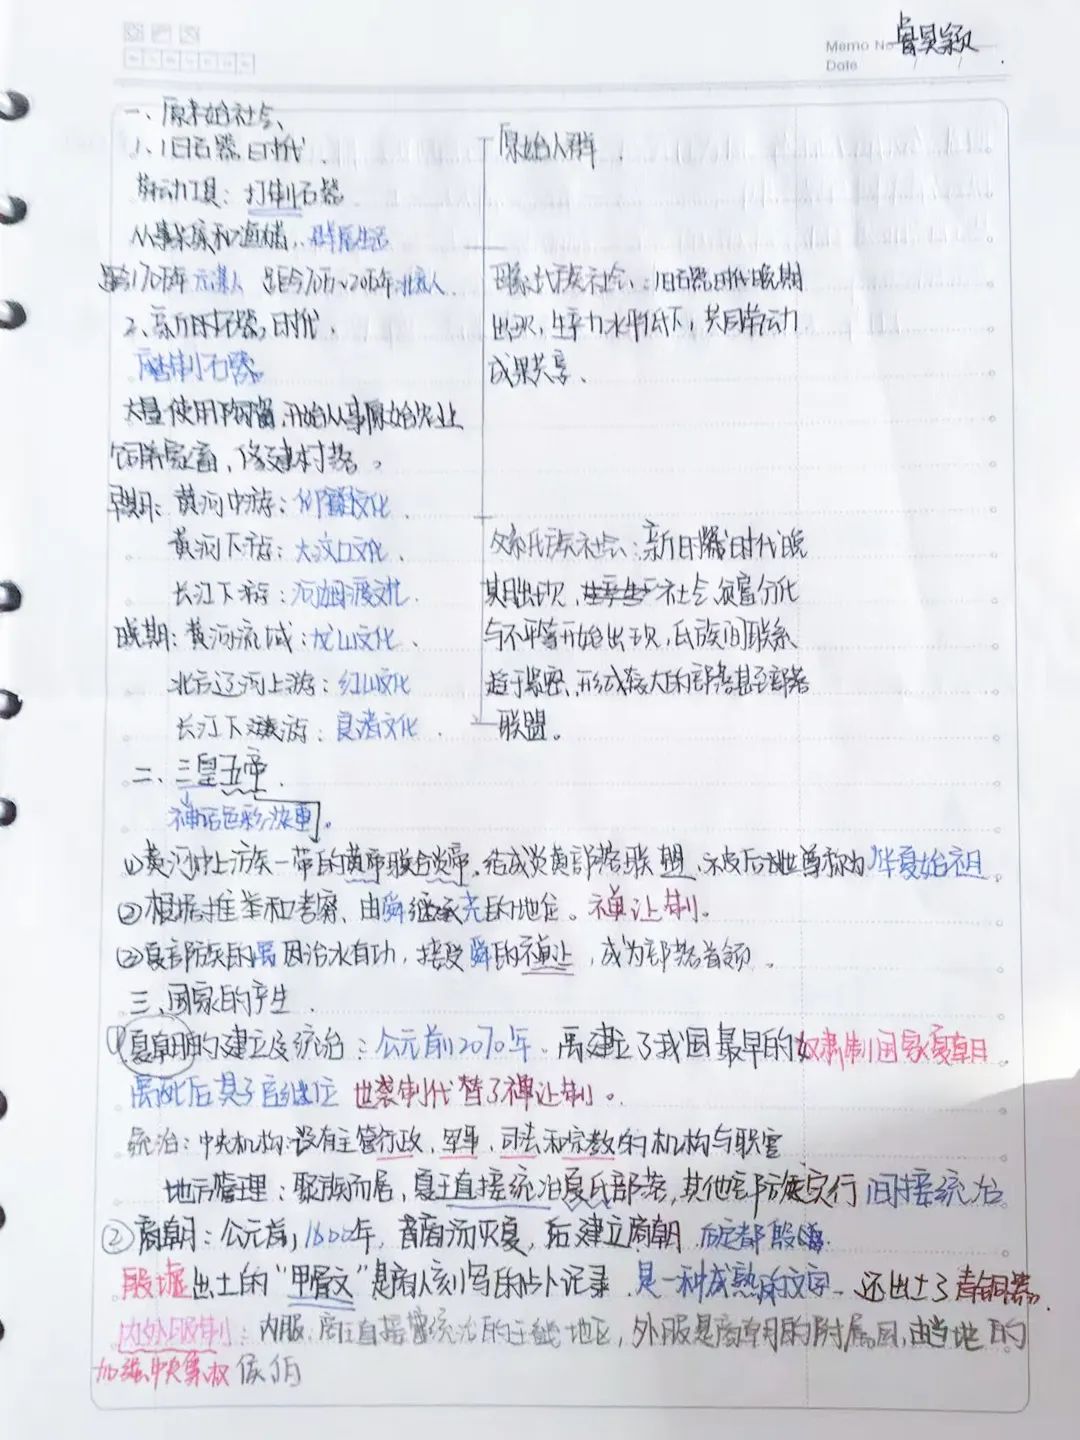 Memo No
Date
一、原始社会
1、旧石器时代
劳动工具：打制石器
从事采集和渔猎，群居生活
距今170万年 元谋人 距今70万~20万年 北京人
2、新石器时代
磨制石器
大量使用陶器，开始从事原始农业
饲养家畜，修建村落。
早期：黄河中游：仰韶文化
黄河下游：大汶口文化
长江下游：河姆渡文化
晚期：黄河流域：龙山文化
北方辽河上游：红山文化
长江下游：良渚文化
原始人群
母系氏族社会：旧石器时代晚期
出现，生产力水平低下，共同劳动
成果共享、
父系氏族社会：新石器时代晚
期出现，社会贫富分化
与不平等开始出现，氏族间联系
趋于紧密，形成较大的部落甚至部落
联盟。
二、三皇五帝
神话色彩浓重。
①黄河中上游一带的黄帝联合炎帝，结成炎黄部落联盟，被后世尊称为华夏始祖
②根据推举和考察，由舜继承尧的地位。禅让制。
③夏部族的禹因治水有功，接受舜的禅让，成为部落首领。
三、国家的产生
①夏朝的建立及统治：公元前2070年，禹建立了我国最早的奴隶制国家夏朝
禹死后其子启继位 世袭制代替了禅让制。
统治：中央机构：设有主管行政、军事、司法和宗教的机构与职官
地方管理：聚族而居，夏王直接统治夏氏部落，其他部族实行间接统治
②商朝：公元前1600年，商汤灭夏，后建立商朝 后定都殷
殷墟出土的“甲骨文”是商人刻写的占卜记录 是一种成熟的文字 还出土了青铜器
内外服制：内服：商王直接管统治的王畿地区，外服是商朝的附属国，由当地的
加强中央集权 侯伯